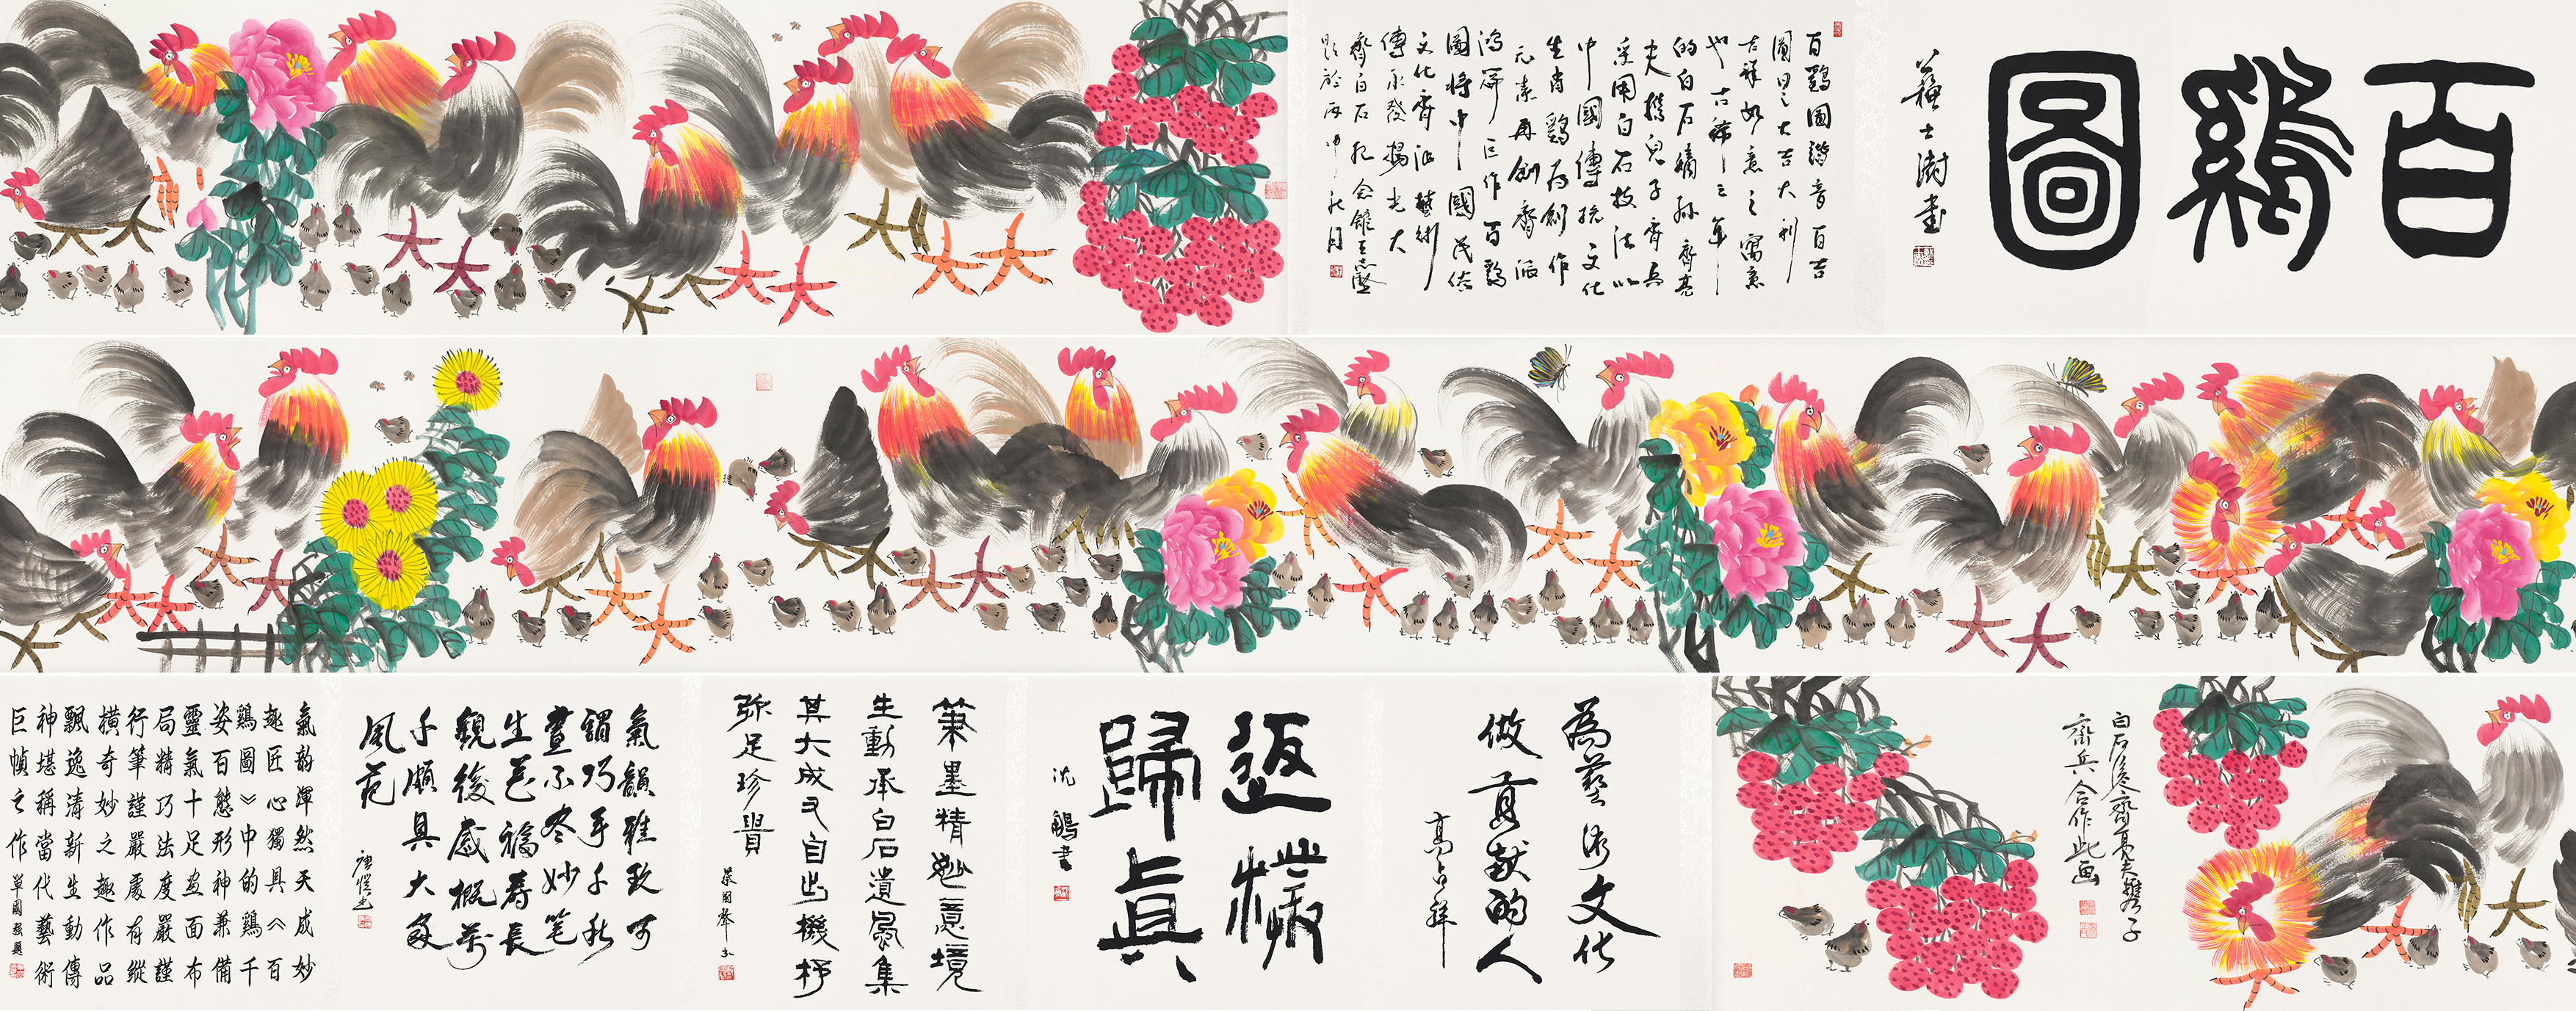 百鷄圖
蘇士澍書
百鷄圖諧音百吉
圖曰之大吉大利
吉祥如意之寓意
也古稀之年
的白石嫡孫齊亮
夫携兒子齊兵
采用白石技法以
中國傳統文化
生肖鷄爲創作
元素再創齊派
鴻篇巨作百鷄
圖將中國民俗
文化齊派藝術
傳承發揚光大
齊白石紀念館
題於丙申秋月
白石後人齊亮夫携子
齊兵合作此画
為藝術文化
做貢献的人
高占祥
返樸
歸真
沈鵬書
筆墨精妙意境
生動承白石遺風集
其大成又自出機杼
弥足珍貴
氣韻雅致可
謂巧手千秋
畫不盡妙笔
生花福壽長
觀後感概萬
千頗具大家
風范
氣韵渾然天成妙
趣匠心獨具《百
鷄圖》中的鷄千
姿百態形神兼備
靈氣十足画面布
局精巧法度嚴謹
行筆謹嚴處有縱
横奇妙之趣作品
飄逸清新生動傳
神堪稱當代藝術
巨幀之作
單國强題